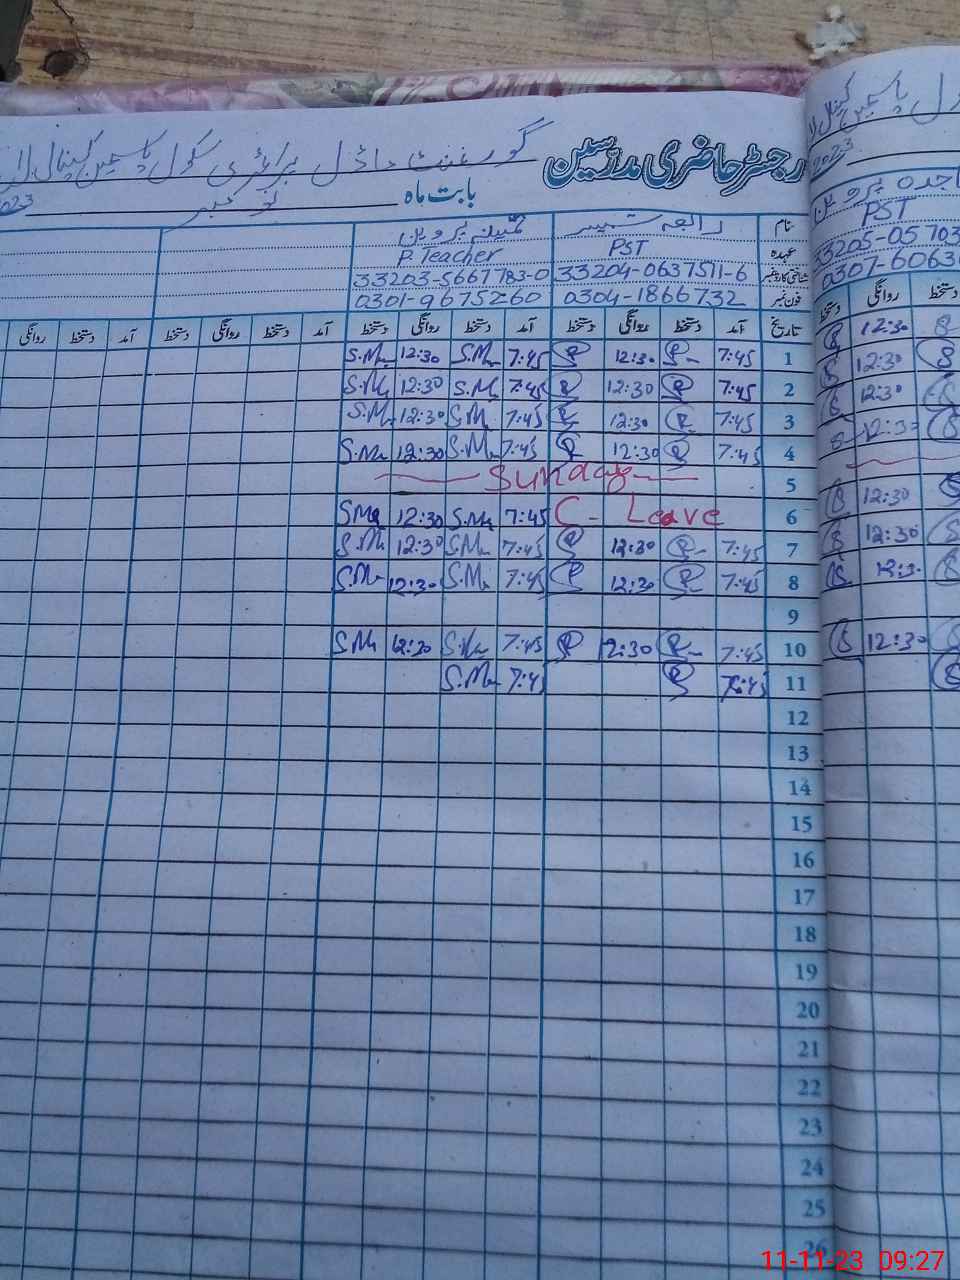 رجسٹر حاضری مدرسین گورنمنٹ ماڈل پرائمری سکول
بابت ماہ نومبر 2023
نام رابعہ ثمینہ پروین
عہدہ PST P.Teacher
شناختی کارڈ نمبر 33204-0637511-6 33203-5667783-0
فون نمبر 0304-1866732 0301-9675260
تاریخ آمد دستخط روانگی دستخط آمد دستخط روانگی دستخط آمد دستخط روانگی دستخط آمد دستخط روانگی
1 7:45 12:30 7:45 S.M 12:30 S.M
2 7:45 12:30 7:45 S.M 12:30 S.M
3 7:45 12:30 7:45 S.M 12:30 S.M
4 7:45 12:30 7:45 S.M 12:30 S.M
5 Sunday
6 C- Leave 7:45 S.M 12:30 S.M
7 7:45 12:30 7:45 S.M 12:30 S.M
8 7:45 12:30 7:45 S.M 12:30 S.M
9
10 7:45 12:30 7:45 S.M 12:30 S.M
11 7:45 7:45 S.M
12
13
14
15
16
17
18
19
20
21
22
23
24
25
26
2023
پروین
PST
33205-05703
0307-6063
دستخط روانگی دستخط
12:30
12:30
12:30
12:30
12:30
12:30
12:30
12:30
11-11-23 09:27